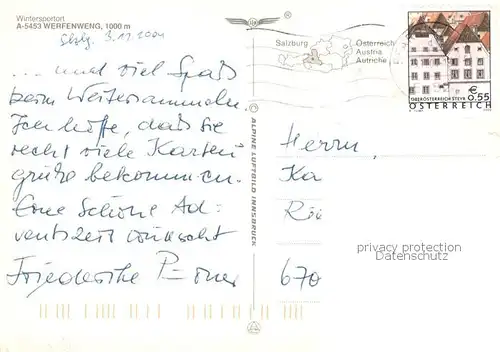 Wintersportort
A-5453 WERFENWENG, 1000 m
Sbg. 3.11.2004
... und viel Spaß
beim Weitersammeln.
Ich hoffe, daß Sie
recht viele Karten
grüße bekommen.
Eine Schöne Ad=
ventszeit wünscht
Friederike
®
ALPINE LUFTBILD INNSBRUCK
Salzburg
Österreich
Austria
Autriche
€
0.55
OBERÖSTERREICH STEYR
ÖSTERREICH
Herrn,
Ka
Rö
670
privacy protection
Datenschutz